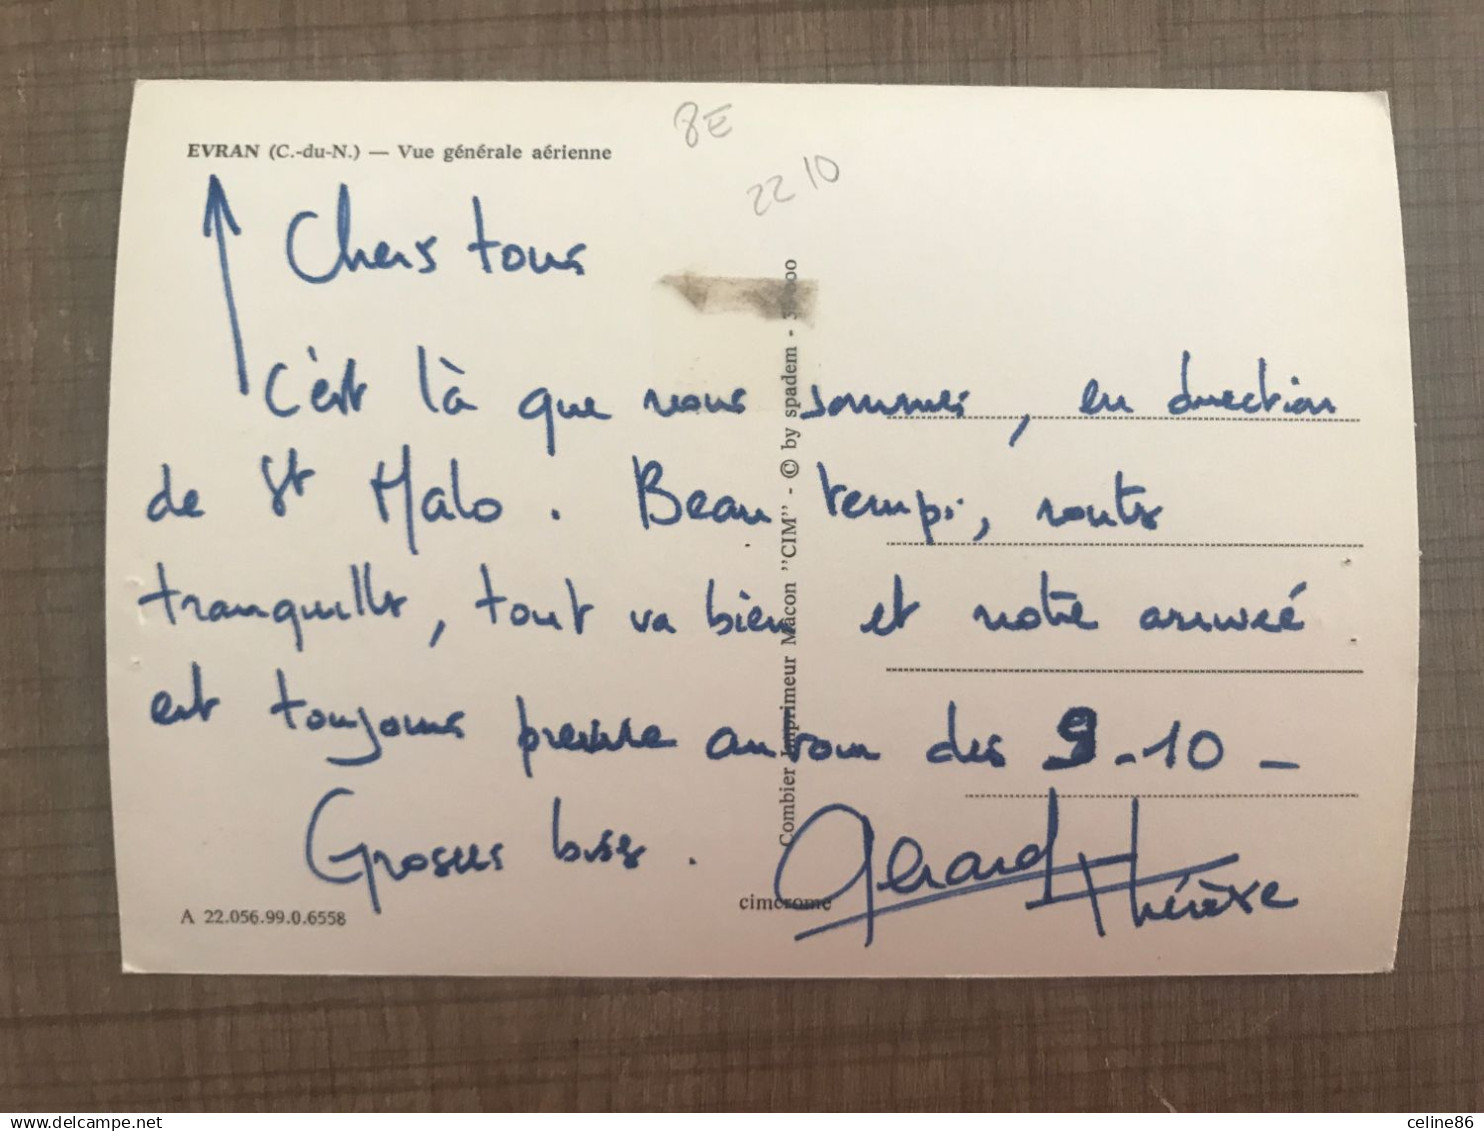 EVRAN (C.-du-N.) — Vue générale aérienne
8E
22 10
Chers tous
C'est là que nous sommes, en direction
de St Malo. Beau temps, routes
tranquilles, tout va bien et notre arrivée
est toujours prévue autour des 9-10 -
Grosses bises.
Gérard
Thérèse
Combier Imprimeur Macon "CIM" - © by spadem -
cimcrome
A 22.056.99.0.6558
delcampe.net
celine86